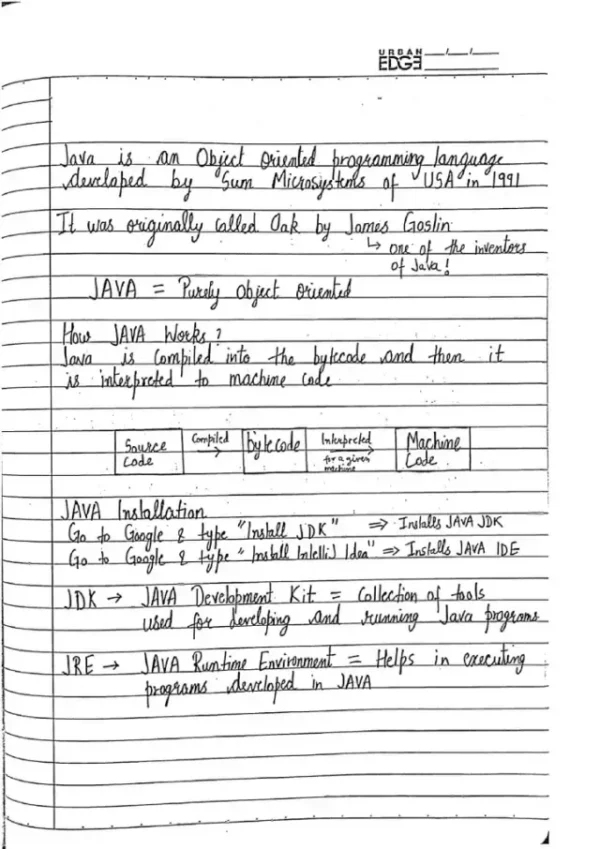 URBAN
EDGE
Java is an Object Oriented programming language
developed by Sum Microsystems of USA in 1991
It was originally called Oak by James Goslin
↳ one of the inventors
of Java!
JAVA = Purely object oriented
How JAVA Works?
Java is Compiled into the bytecode and then it
is interpreted to machine code
Source Code → Compiled → bytecode → Interpreted for a given machine → Machine Code
JAVA Installation
Go to Google & type "Install JDK" ⇒ Installs JAVA JDK
Go to Google & type "Install Intellij Idea" ⇒ Installs JAVA IDE
JDK → JAVA Development Kit = Collection of tools
used for developing and running Java programs
JRE → JAVA Runtime Environment = Helps in executing
programs developed in JAVA